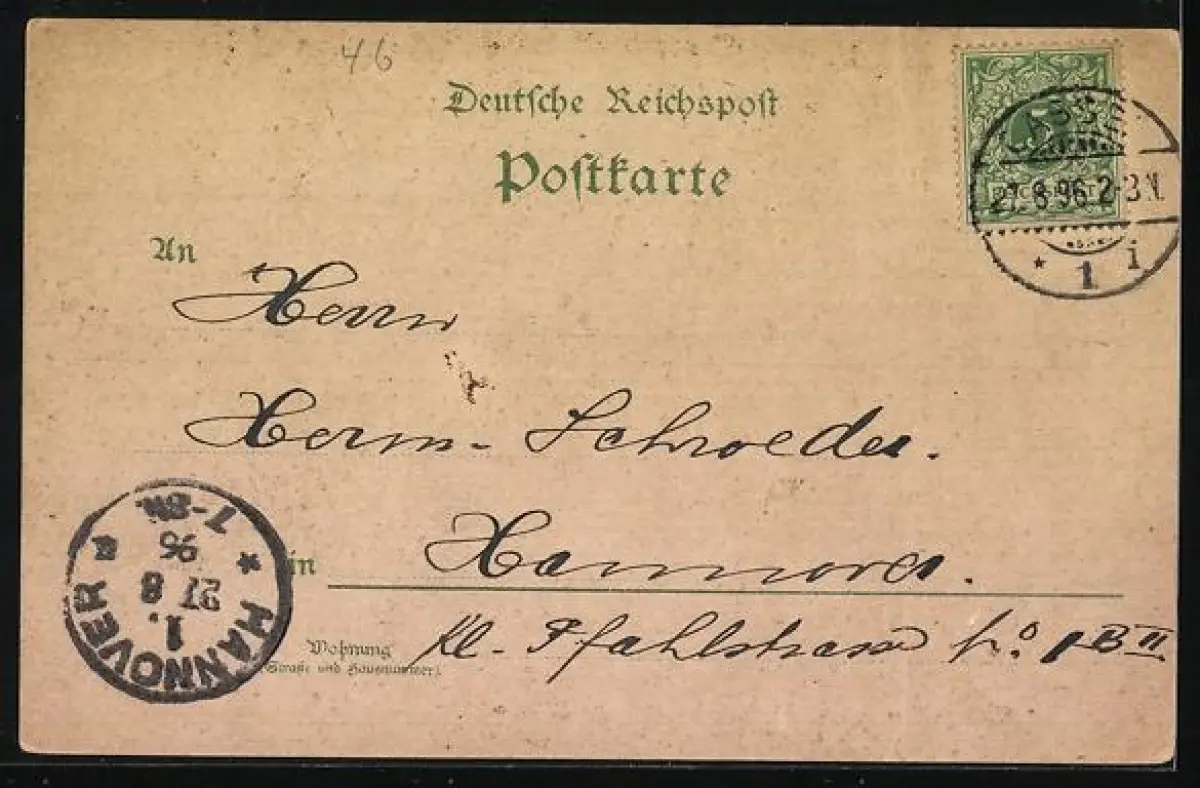 46
Deutsche Reichspost
Postkarte
27.8.96.2-3N.
* 1 i
An
Herrn
Herm. Schroeder.
in Hannover.
Wohnung
(Straße und Hausnummer).
Kl. Pfahlstrasse No. 1 B II
* HANNOVER
1.
27 8
96
7-8N.